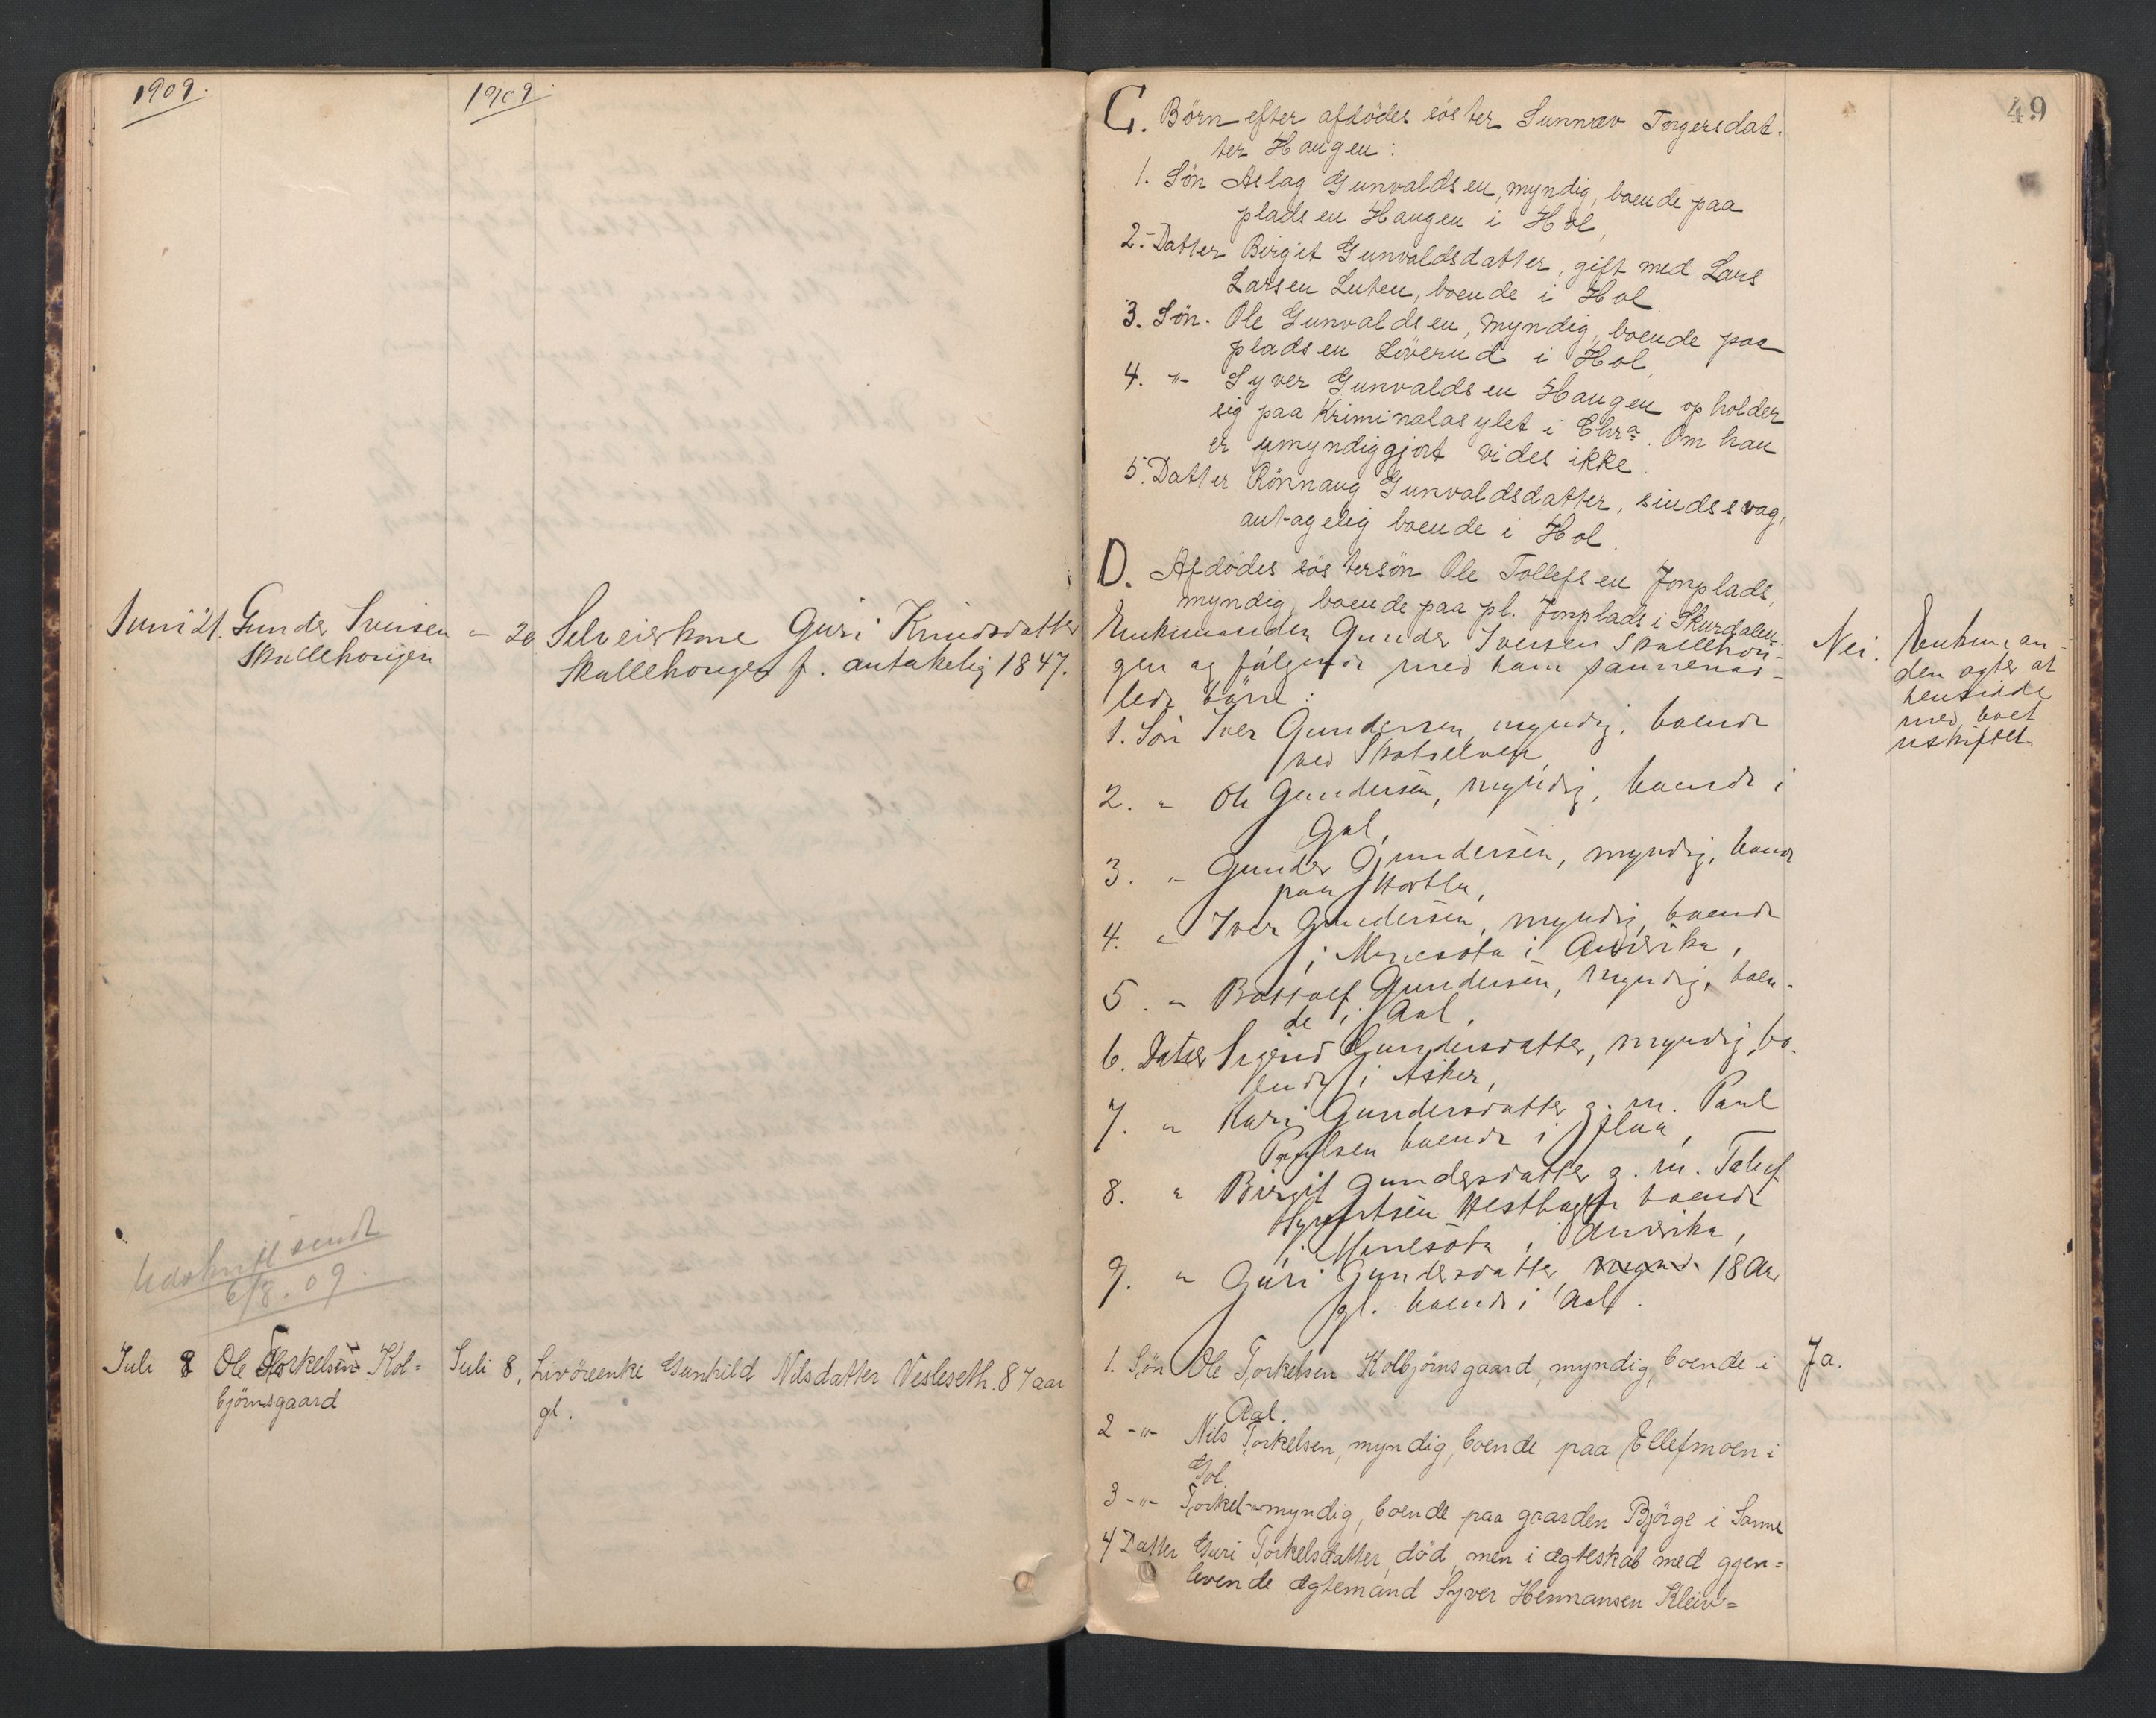 1909.
1909.
49
C. Börn efter afdödes söster Sunnæv Torgersdat-
ter Haugen:
1. Sön Aslag Gunvaldsen, myndig, boende paa
pladsen Haugen i Hol,
2. Datter Birgit Gunvaldsdatter, gift med Lars
Larsen Luten, boende i Hol
3. Sön. Ole Gunvaldsen, myndig, boende paa
pladsen Löverud i Hol,
4. -"- Syver Gunvaldsen Haugen opholder
sig paa Kriminalasylet i Chra. Om han
er umyndiggjort vides ikke.
5. Datter Rönnaug Gunvaldsdatter, sindssvag,
antagelig boende i Hol.
D. Afdödes söstersön Ole Tollefsen Jonplads,
myndig, boende paa pl. Jonplads i Skurdalen
Juni 21. Gunder Iversen
Skallehougen
" 20 Selveierkone Guri Knudsdatter
Skallehougen f. antakelig 1847.
Enkemanden Gunder Iversen Skallehou-
gen og følgende med ham sammenav-
lede børn:
1. Søn Iver Gundersen, myndig, boende
ved Skotselven,
2. " Ole Gundersen, myndig, boende i
Gol,
3. " Gunder Gundersen, myndig, boende
paa
4. " Iver Gundersen, myndig, boende
i Minesota i Amerika,
5. " Bottolf Gundersen, myndig, boen-
de i Aal,
6. Datter Sigrid Gundersdatter, myndig, bo-
ende i Asker,
7. " Kari Gundersdatter g. m. Paul
Paulsen boende i Flaa,
8. " Birgit Gundersdatter g. m.
boende
i Minesota i Amerika,
9. " Guri Gundersdatter, 18 Aar
gl. boende i Aal.
Nei.
Enkeman-
den agter at
hensidde
med boet
uskiftet
Udskr. til sendt
6/8. 09.
Juli 8 Ole Torkelsen Kol=
björnsgaard
Juli 8, Livöreenke Gunhild Nilsdatter Vesleseth. 87 aar
gl.
1. Sön Ole Torkelsen Kolbjörnsgaard, myndig, boende i
Aal.
Ja.
2 -"- Nils Torkelsen, myndig, boende paa Ellefmoen i
Gol.
3 -"- Torkel -"- myndig, boende paa gaarden Björge i Samme
4 Datter Guri Torkelsdatter, död, men i ægteskab med gjen=
levende ægtemand Syver Hermansen Kleiv=